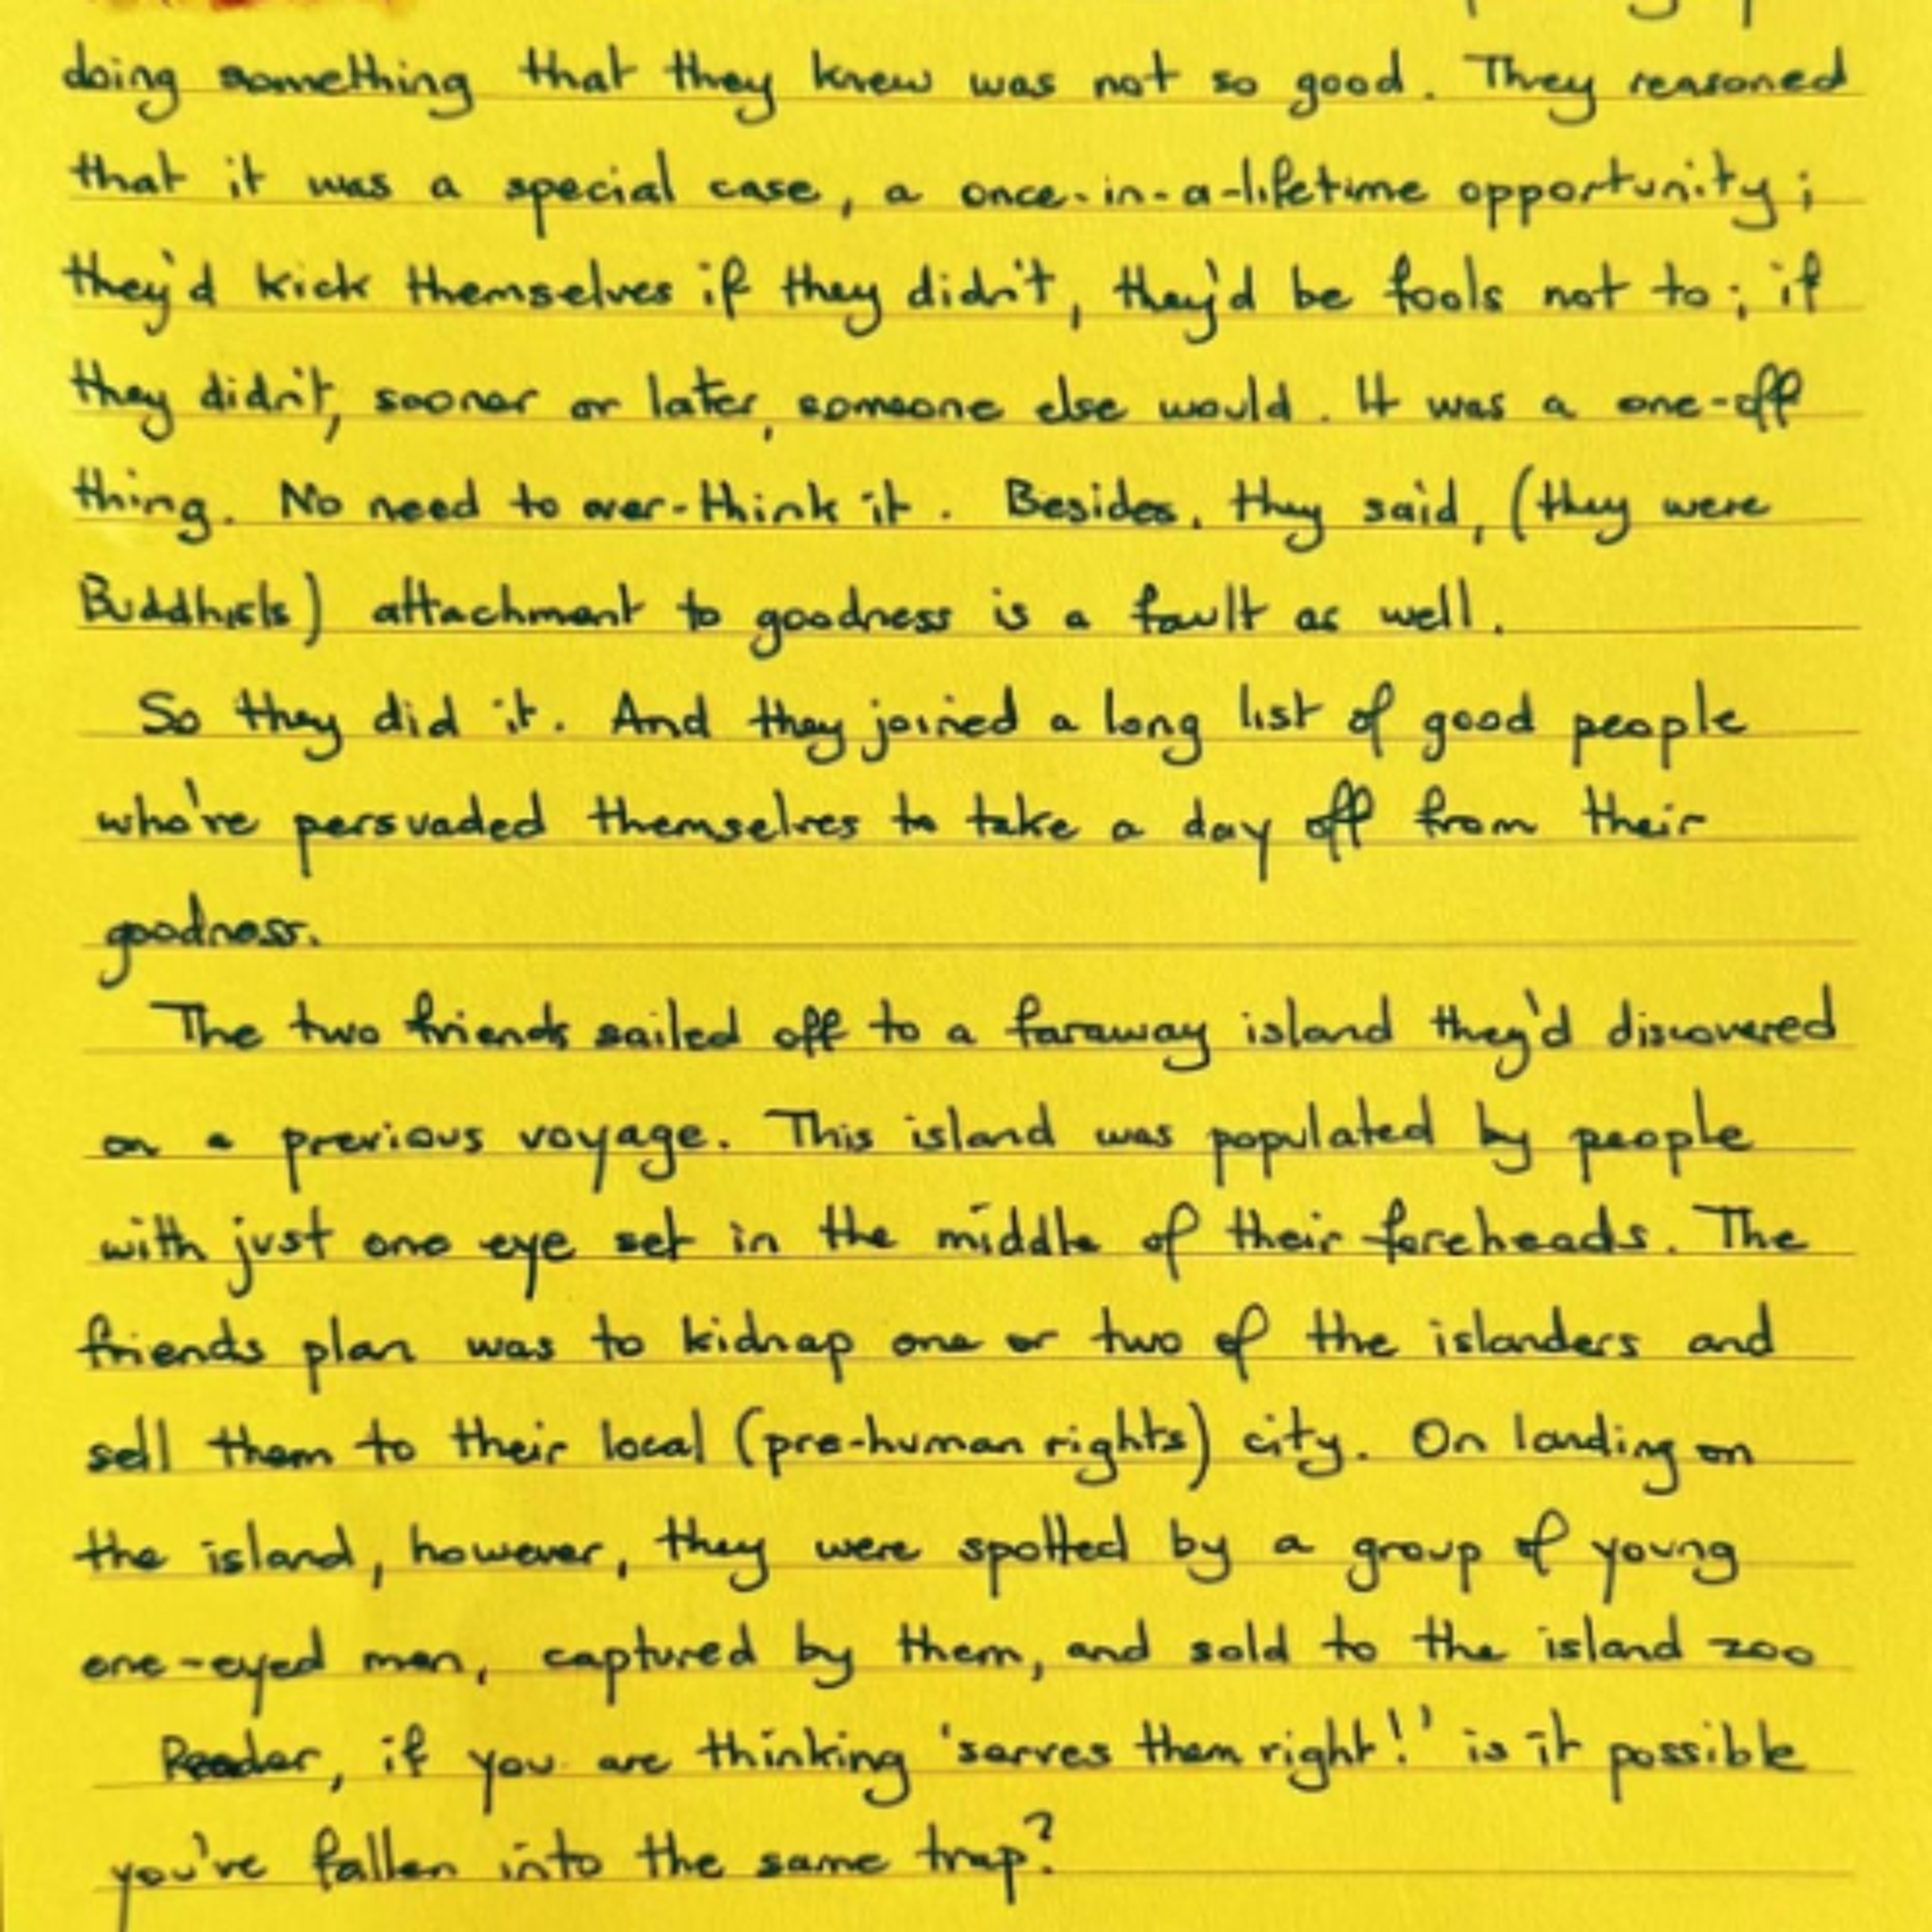 doing something that they knew was not so good. They reasoned
that it was a special case, a once-in-a-lifetime opportunity;
they'd kick themselves if they didn't, they'd be fools not to; if
they didn't, sooner or later, someone else would. It was a one-off
thing. No need to over-think it. Besides, they said, (they were
Buddhists) attachment to goodness is a fault as well.
So they did it. And they joined a long list of good people
who've persuaded themselves to take a day off from their
goodness.
The two friends sailed off to a faraway island they'd discovered
on a previous voyage. This island was populated by people
with just one eye set in the middle of their foreheads. The
friends plan was to kidnap one or two of the islanders and
sell them to their local (pre-human rights) city. On landing on
the island, however, they were spotted by a group of young
one-eyed men, captured by them, and sold to the island zoo
Reader, if you are thinking 'serves them right!' is it possible
you've fallen into the same trap?